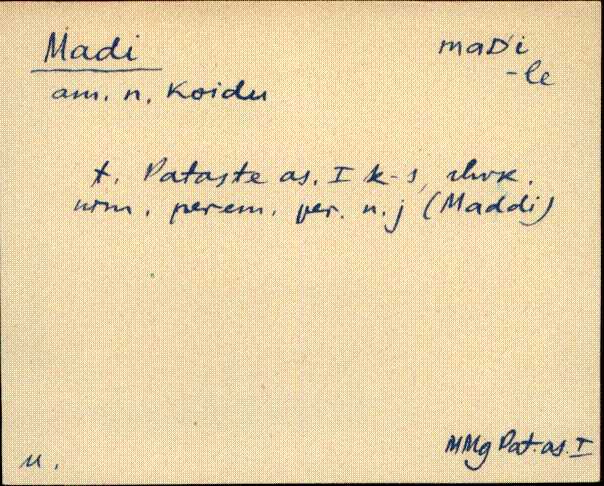 Madi
maDi
-le
am. n. Koidu
t. Pataste as. I k-s,
nim. perem. per. n. j (Maddi)
MMg Pat. as. I
M.